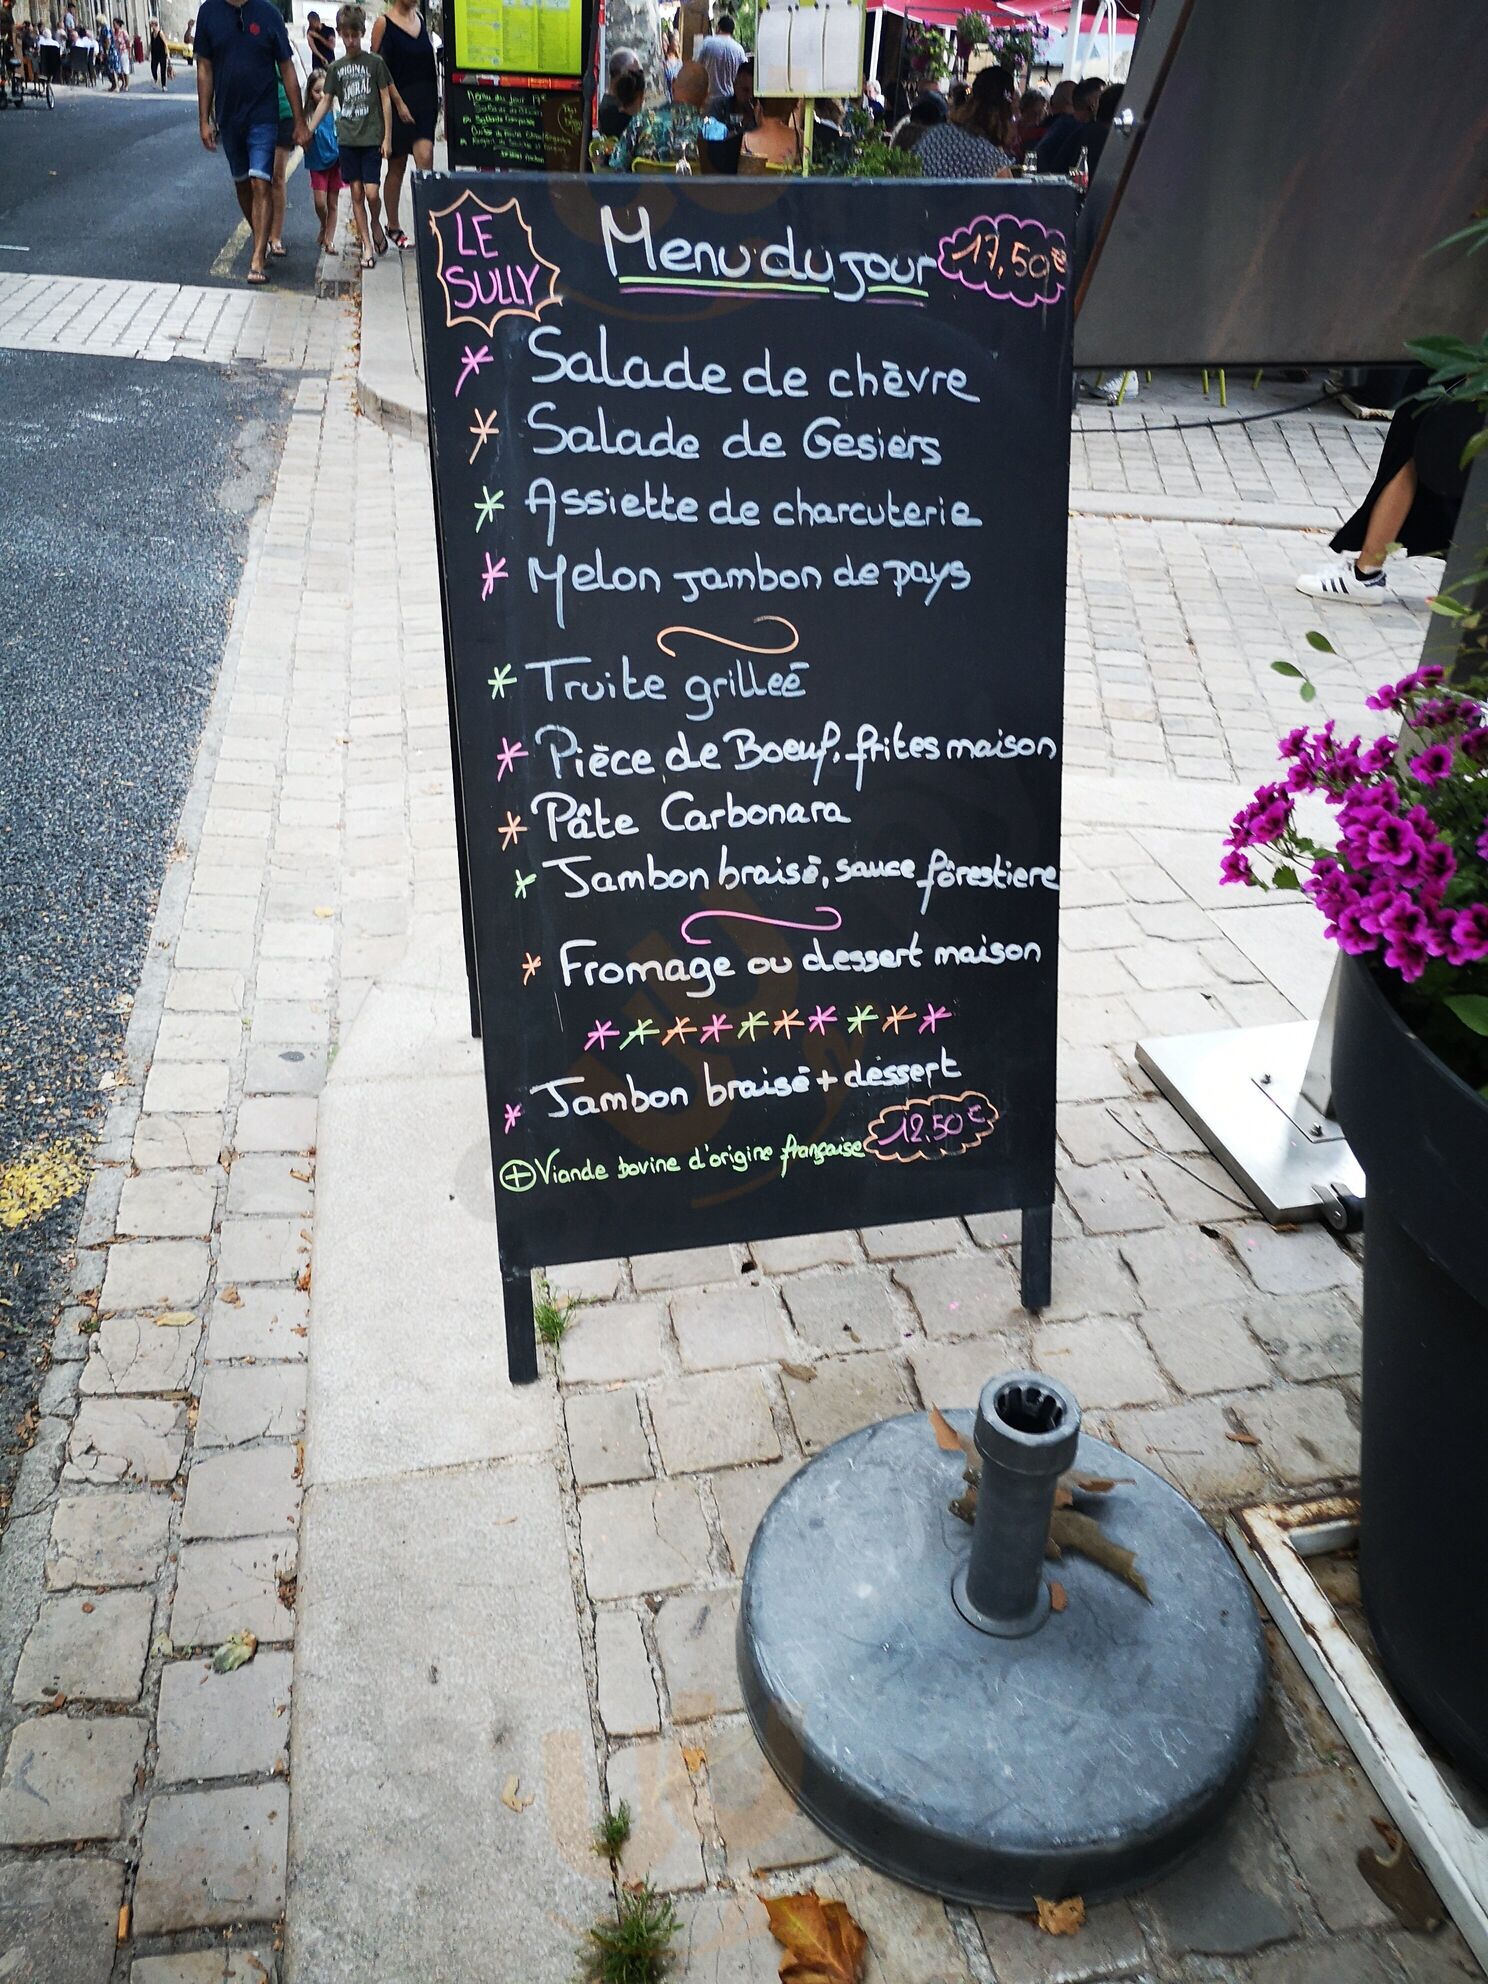 LE
SULLY
Menu du jour 17,50€
Salade de chèvre
Salade de Gesiers
Assiette de charcuterie
Melon jambon de pays
Truite grilleé
Pièce de Boeuf, frites maison
Pâte Carbonara
Jambon braisé, sauce fôrestiere
Fromage ou dessert maison
Jambon braisé + dessert
12.50€
Viande bovine d'origine française
ORIGINAL